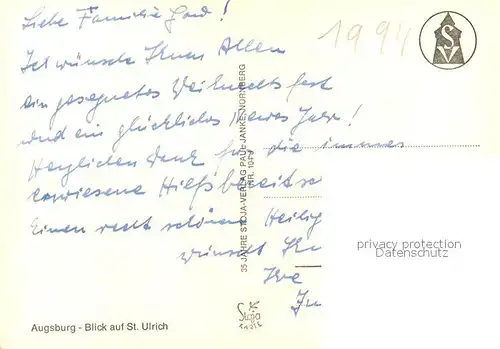 Liebe Familie Gord!
1994
Ich wünsche Ihnen Allen
ein gesegnetes Weihnachtsfest
und ein glückliches Neues Jahr!
Herzlichen Dank für die immer
erwiesene Hilfsbereitsc
Einen recht schönen Heilig
wünscht Ihn
Ihre
35 JAHRE STOJA-VERLAG PAUL JANKE, NÜRNBERG
NR. 104
SV
privacy protection
Datenschutz
Stoja
Augsburg - Blick auf St. Ulrich